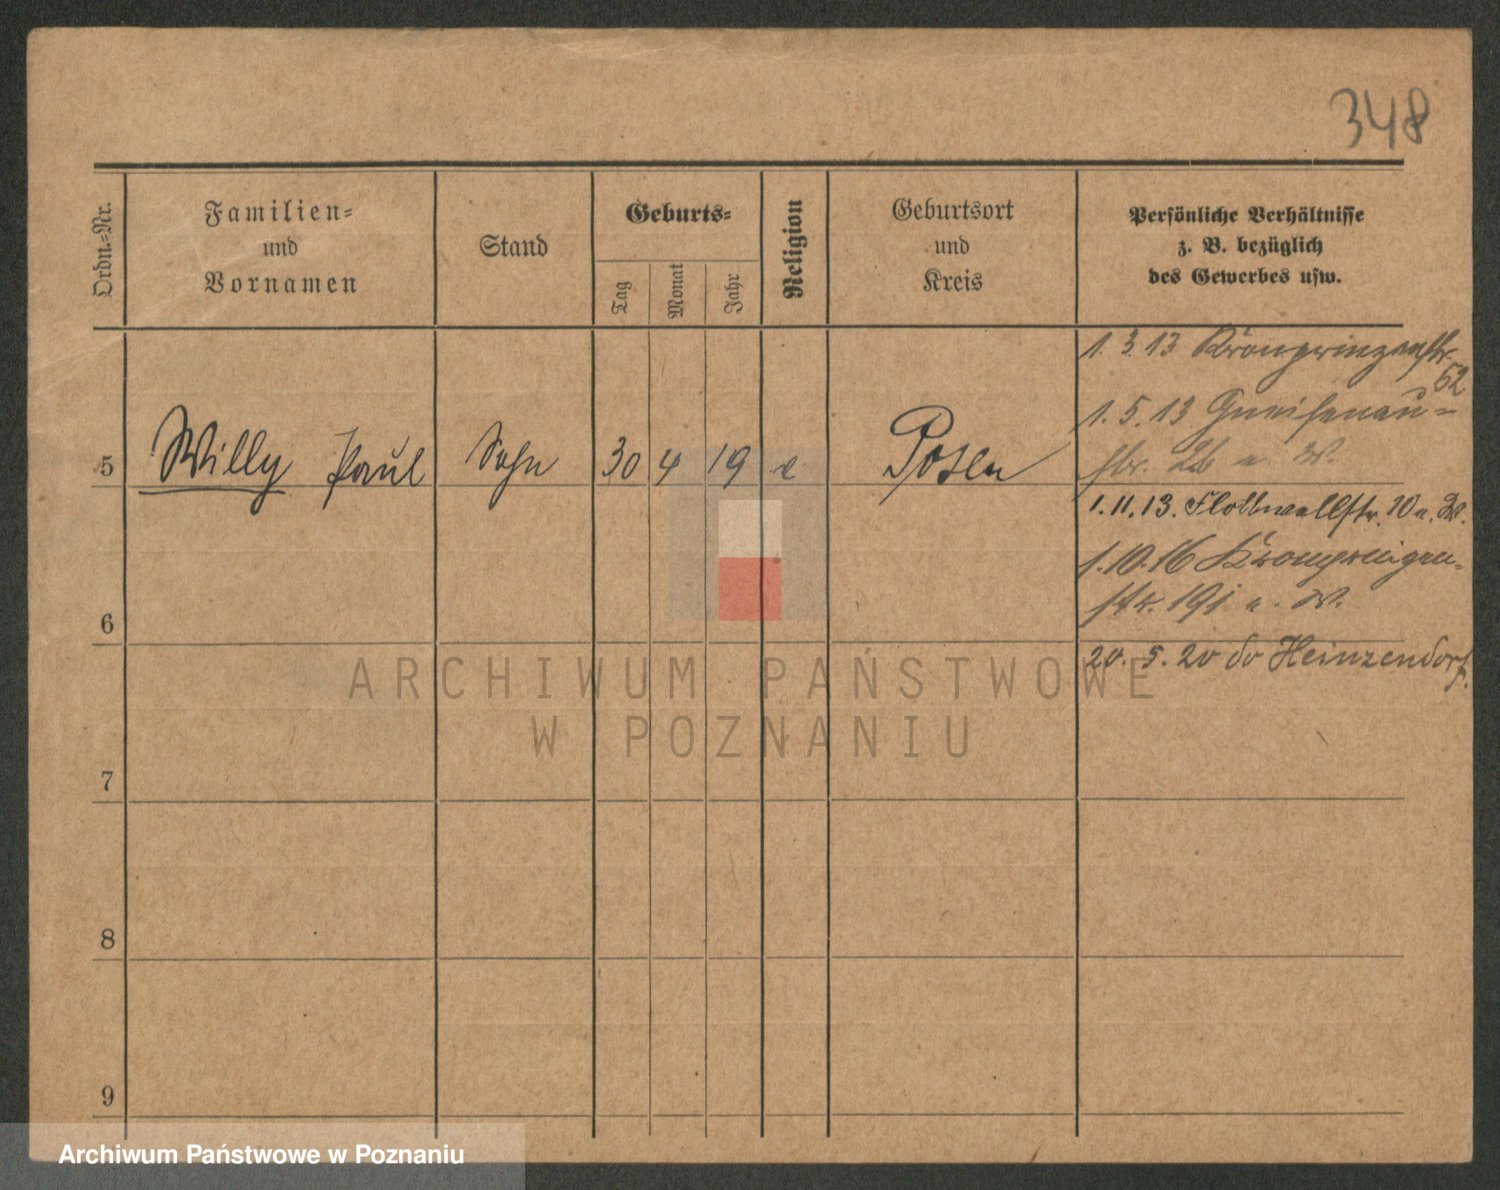 348
Ordn.=Nr.
Familien=
und
Vornamen
Stand
Geburts=
Tag
Monat
Jahr
Religion
Geburtsort
und
Kreis
Persönliche Verhältnisse
z. B. bezüglich
des Gewerbes usw.
1. 3. 13 Kronprinzenstr.
52
1. 5. 13 Gneisenau=
str. 2b u. W.
5 Willy Paul Sohn 30 4 19 e Posen
1. 11. 13. Flottwellstr. 10 u. W.
1. 10. 16 Kronprinzen=
str. 191 u. W.
6
20. 5. 20 do Heinzendorf.
ARCHIWUM PAŃSTWOWE
W POZNANIU
7
8
9
Archiwum Państwowe w Poznaniu